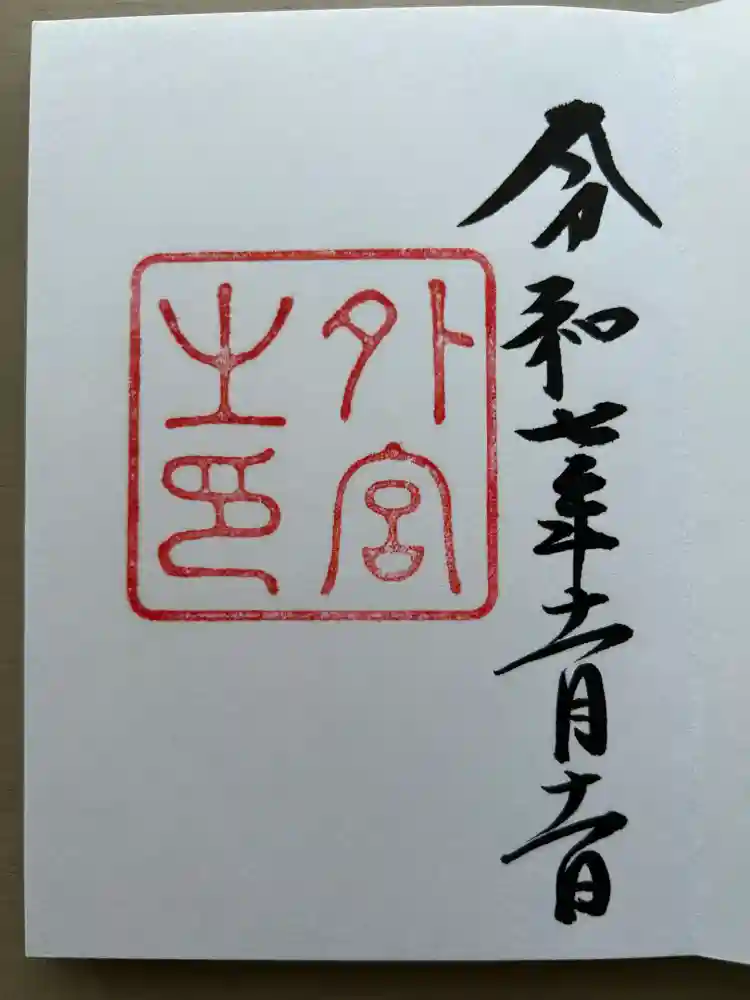 令和七年十一月十一日
外宮
之印